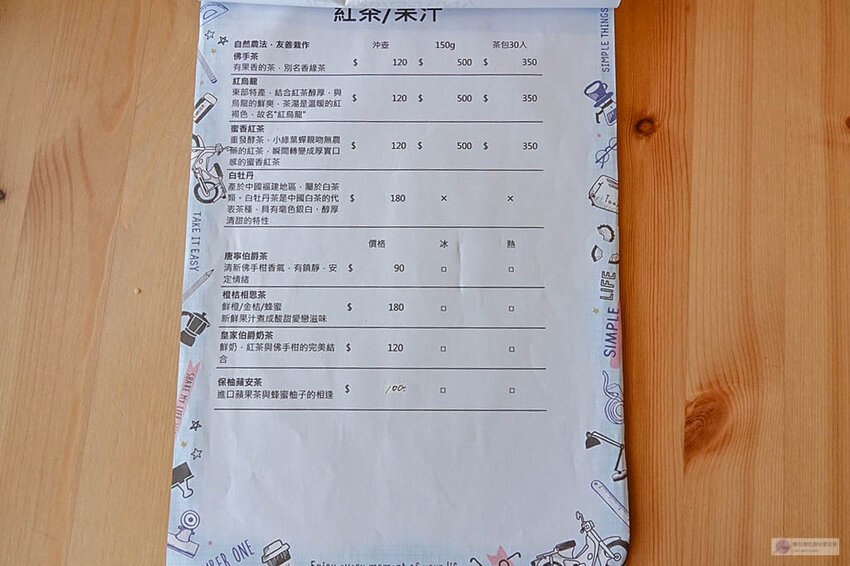 紅茶/果汁
自然農法・友善栽作 沖壺 150g 茶包30入
佛手茶
有果香的茶，別名香緣茶 $ 120 $ 500 $ 350
紅烏龍
東部特產，結合紅茶醇厚，與
烏龍的鮮爽，茶湯是溫暖的紅
褐色，故名"紅烏龍" $ 120 $ 500 $ 350
蜜香紅茶
重發酵茶，小綠葉蟬親吻無農
藥的紅茶，瞬間轉變成厚實口
感的蜜香紅茶 $ 120 $ 500 $ 350
白牡丹
產於中國福建地區，屬於白茶
類。白牡丹茶是中國白茶的代
表茶種，具有毫色銀白、醇厚
清甜的特性 $ 180 × ×
價格 冰 熱
唐寧伯爵茶
清新佛手柑香氣，有鎮靜，安
定情緒 $ 90 □ □
橙桔相思茶
鮮橙/金桔/蜂蜜
新鮮果汁煮成酸甜愛戀滋味 $ 180 □ □
皇家伯爵奶茶
鮮奶，紅茶與佛手柑的完美結
合 $ 120 □ □
保柚蘋安茶
進口蘋果茶與蜂蜜柚子的相逢 $ 100 □ □
SIMPLE THINGS
TAKE IT EASY
SIMPLE LIFE
SHARE MY LIFE
NUMBER ONE
Enjoy every moment of your life